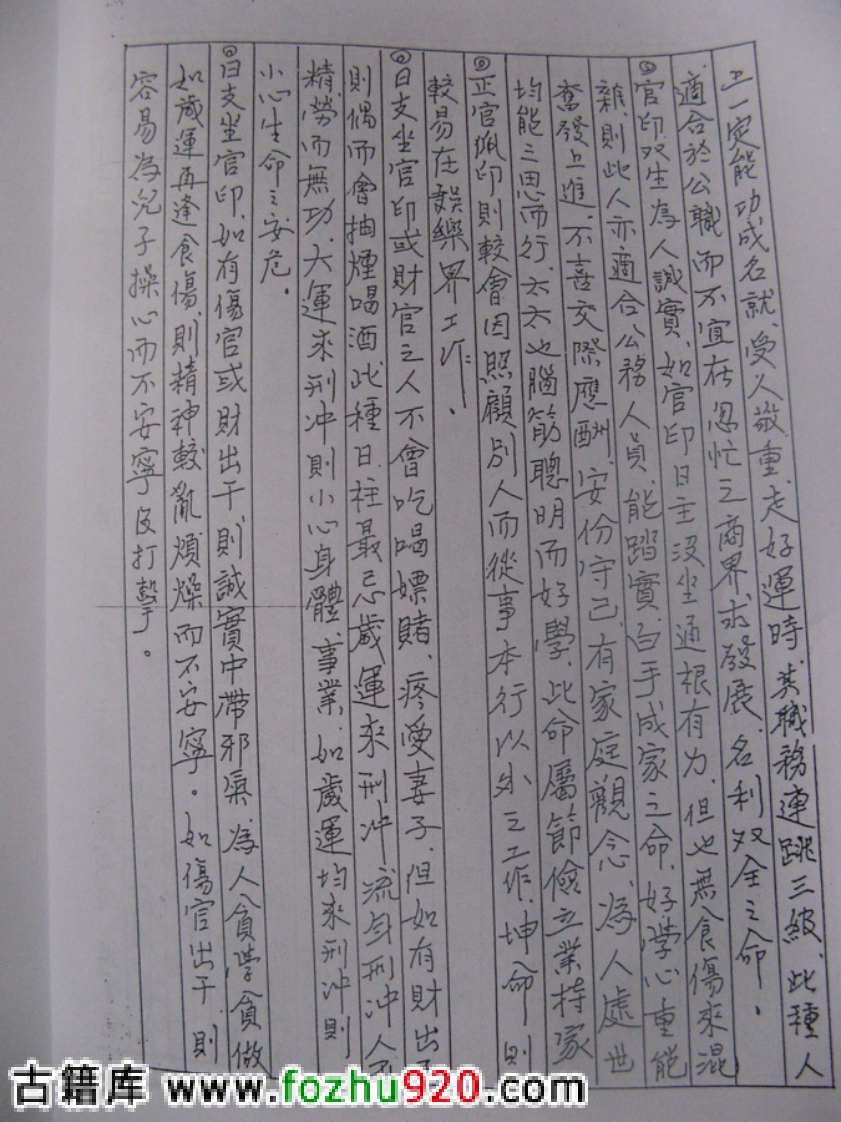 上一定能功成名就、受人敬重、走好運時、其職務連跳三級、此種人
適合於公職而不宜在忽忙之商界、求發展、名利双全之命。
官印双生為人誠實、如官印日主沒坐通根有力、但也無食傷來混
雜、則此人亦適合公務人員、能踏實、白手成家之命、好學心重、能
奮發上進、不喜交際應酬、安份守己、有家庭觀念、為人處世
均能三思而行、太太也腦筋聰明而好學、此命屬節儉立業持家
正官佩印則較會因照顧別人而從事本行以外之工作、坤命則
較易在娛樂界工作。
日支坐官印或財官之人不會吃喝嫖賭、疼愛妻子、但如有財出
則偶而會抽煙喝酒、此種日柱最忌歲運來刑冲、流年刑冲人
精、勞而無功、大運來刑冲則小心身體、事業、如歲運均來刑冲則
小心生命之安危。
日支坐官印、如有傷官或財出干、則誠實中帶邪氣、為人貪學貪做
如歲運再逢食傷、則精神較亂煩燥而不安寧。如傷官出干則
容易為兒子操心而不安寧及打擊。
古籍库 www.fozhu920.com